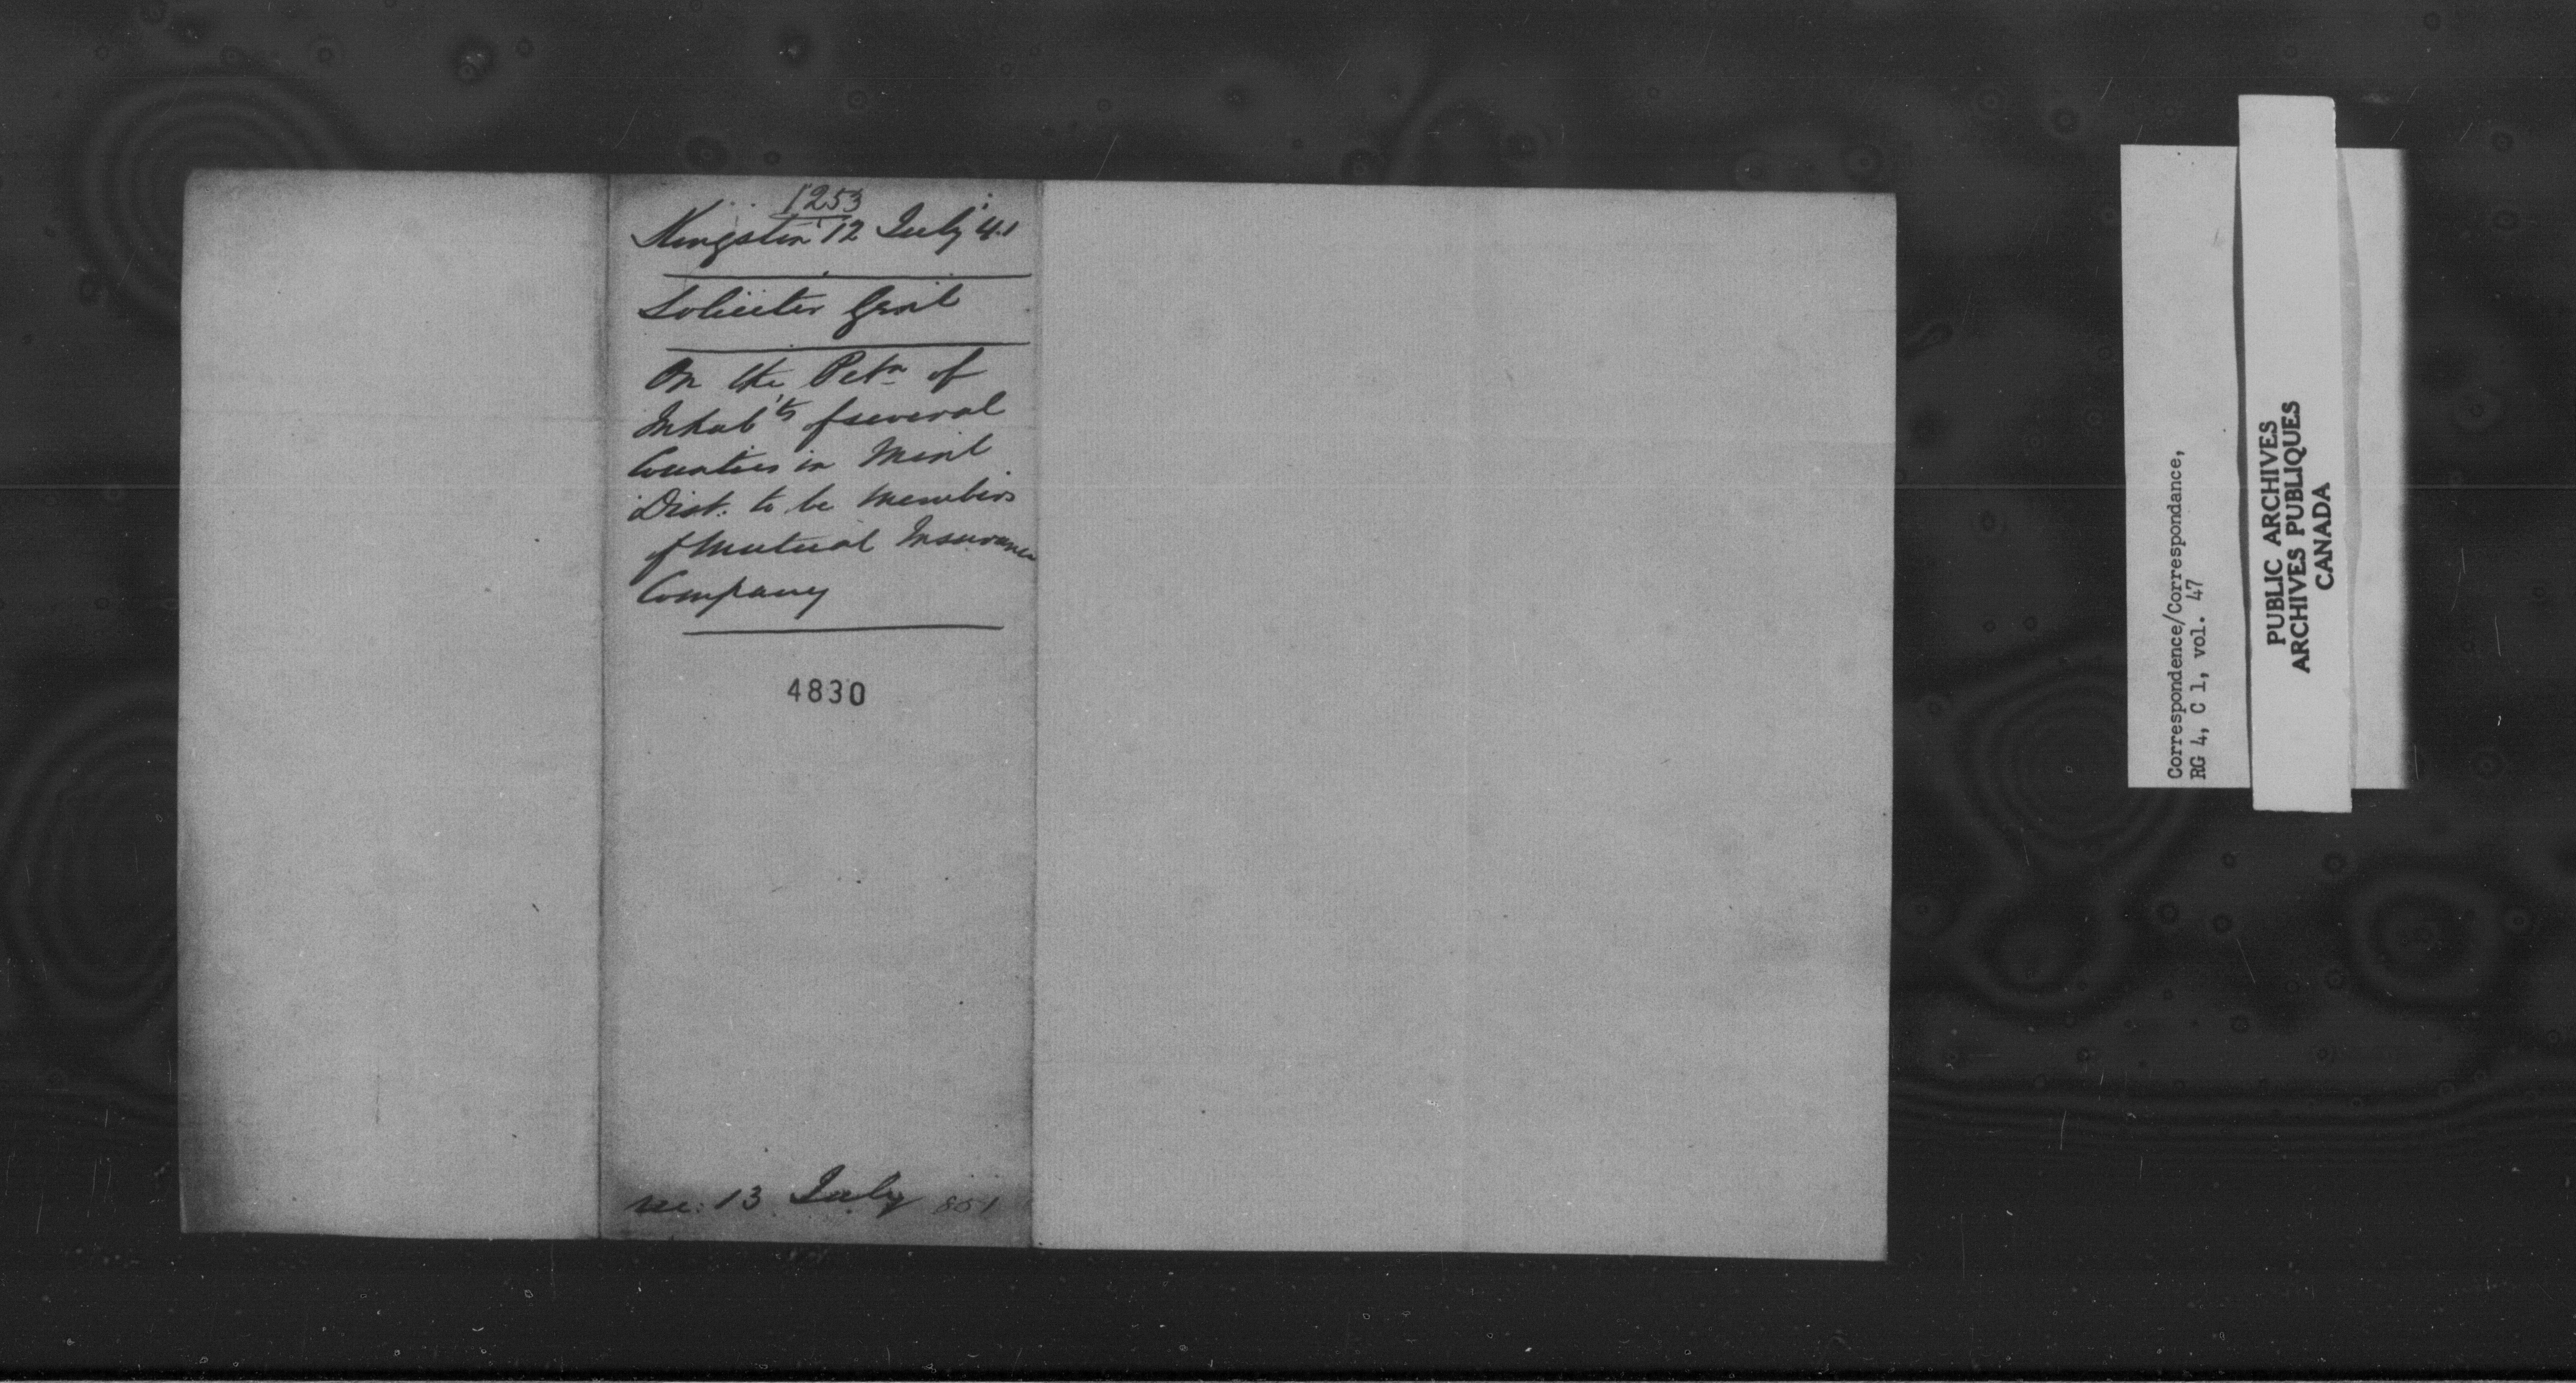 1253
Kingston 12 July 41
Solicitor Genl
On the Petn of
Inhabts of several
Counties in Monl
Dist. to be members
of Mutual Insurance
Company
4830
rec: 13 July 801
Correspondence/Correspondance,
RG 4, C 1, vol. 47
PUBLIC ARCHIVES
ARCHIVES PUBLIQUES
CANADA